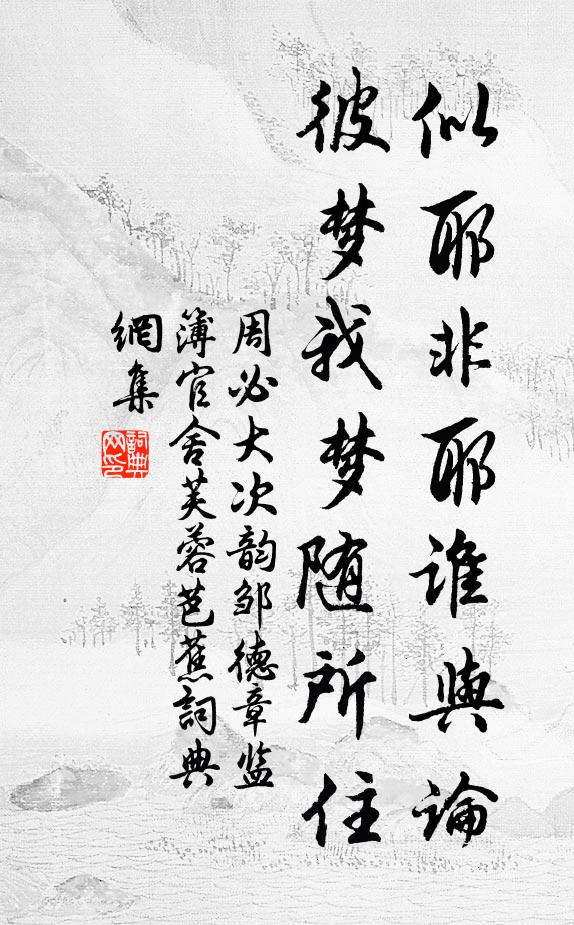 似耶非耶谁與論
彼梦我梦随所住
周必大次韵邹德章监
簿官舍芙蓉芭蕉詞典
網集
詞典
网印